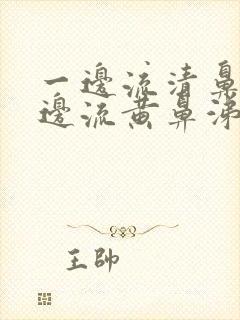 一邊流清鼻
邊流黃鼻涕
王帥